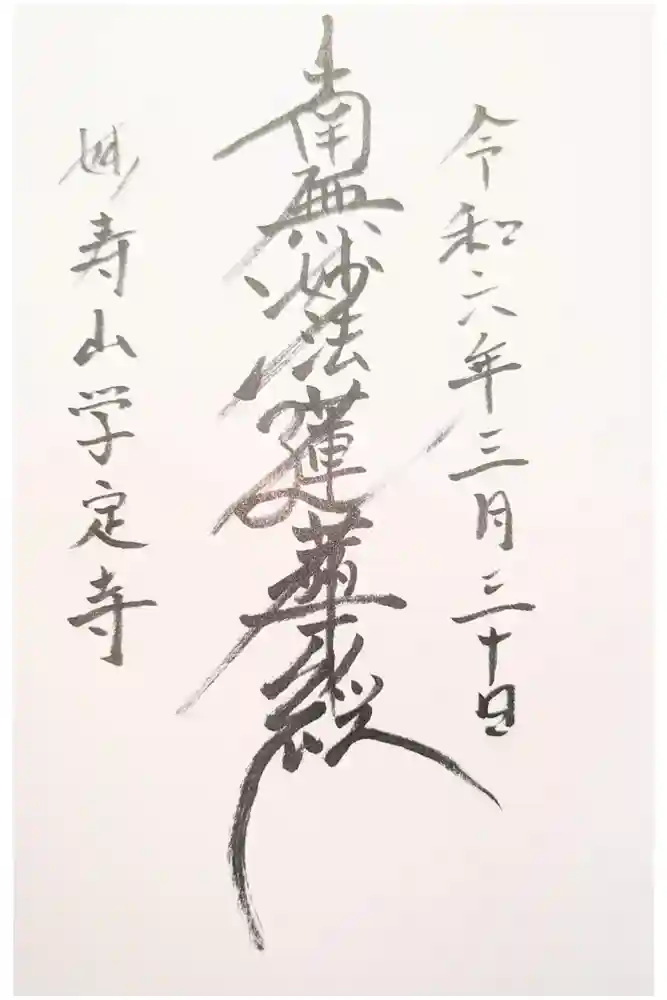 令和六年三月三十日
南無妙法蓮華経
妙寿山学定寺